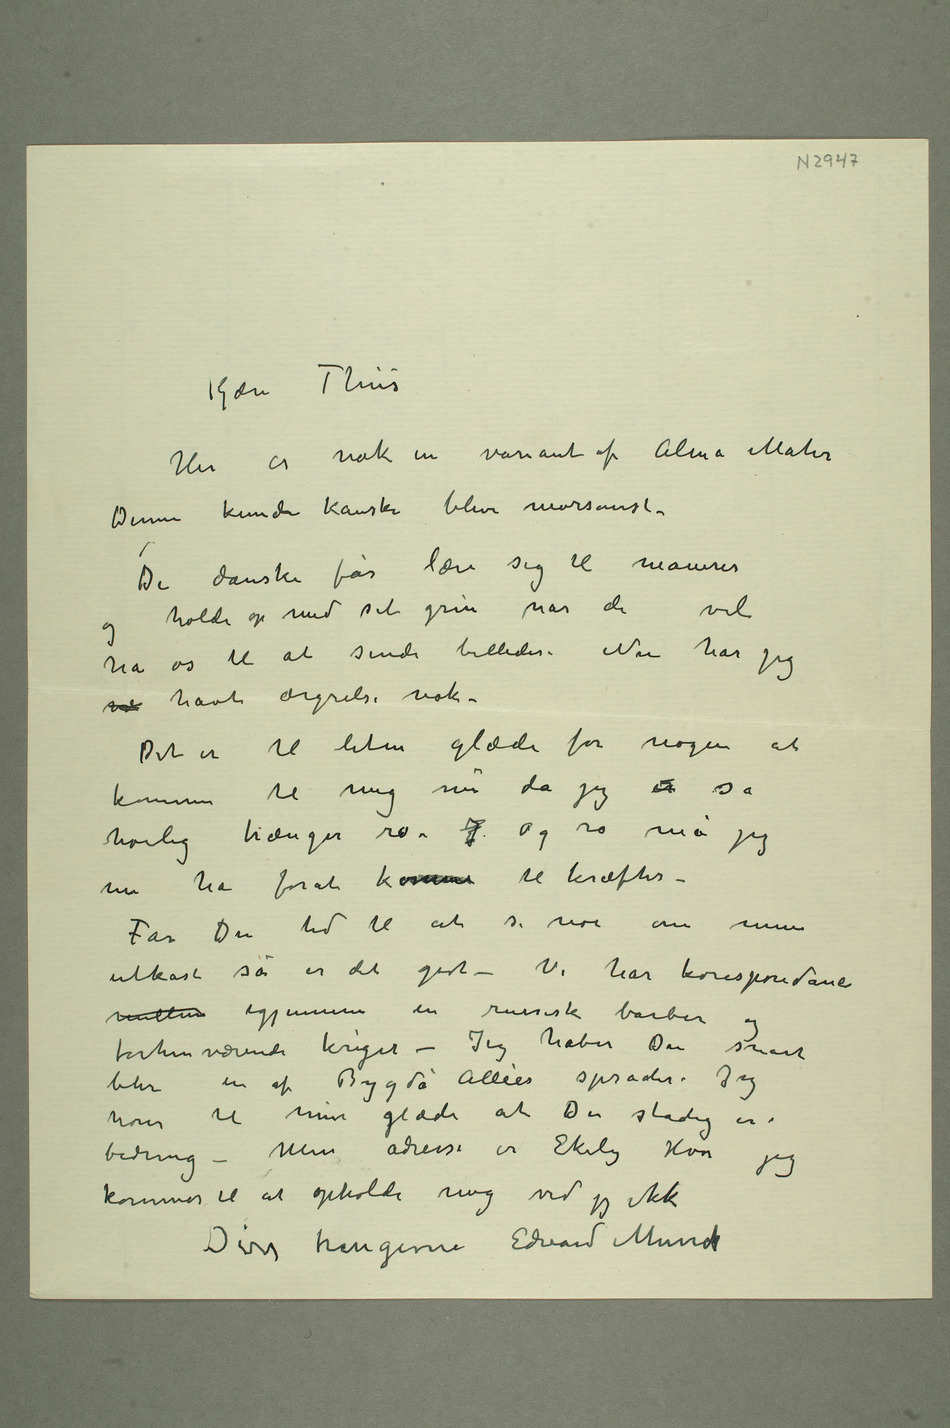 N 2947
Kjære Thiis
Her er nok en variant af Alma Mater
Denne kunde kanske blive morsomst.
De danske får lære sig til manerer
og holde op med sit grin når de vil
ha os til at sende billeder. Nu har jeg
havt ærgrelse nok –
Det er til liten glæde for nogen at
komme til mig nu da jeg er så
høilig trænger ro. Og ro må jeg
nu ha forat komme til kræfter –
Får Du tid til at se noe om mine
utkast så er det godt – Vi har korespondanse
mellem igjennem en russisk barber og
forhenværende kriger – Jeg håber Du snart
blir en af Bygdø Allées sprader. Jeg
hører til min glæde at Du stadig er i
bedring – Min adresse er Ekely Hvor jeg
kommer til at opholde mig ved jeg ikke
Din hengivne Edvard Munch